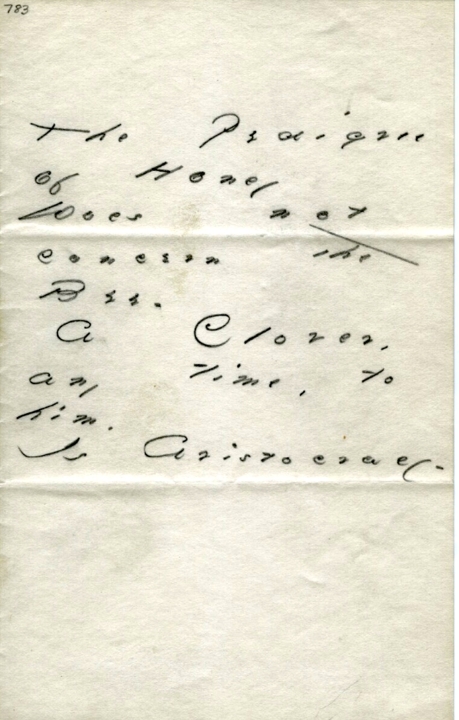 783
The Pedigree
of Honey
Does not
concern the
Bee.
A Clover,
any time, to
him.
Is Aristocracy-